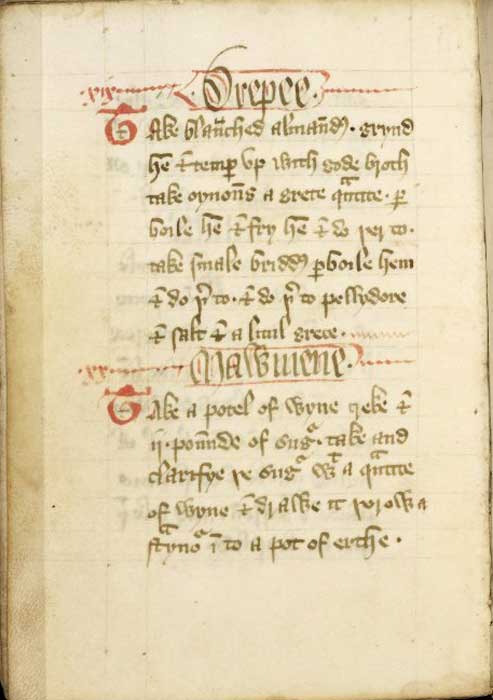 .xix. Drepee.
Take blaūched almaund̉. grynd
hē & temꝑ vp with gode broth
take oynoūs a grete qᵃntite. ꝑ
boile hē & fry hē & do þer to.
take smale bridd̉ ꝑboile hem
& do þʳ to. & do þʳ to pellydore
& salt & a litul grece.
.xx. Mawmene.
Take a potel of wyne greke &
ii. poūnde of sugʳ. take and
clarifye þe sugʳ wᵗ a qᵃntite
of wyne & drawe it þorow a
stᵃynoʳ ī to a pot of erthe.